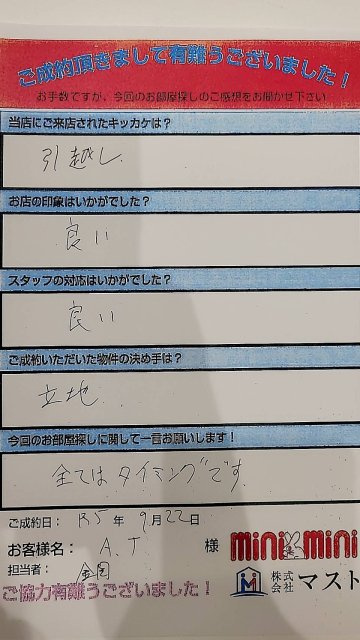 ご成約頂きまして有難うございました！
お手数ですが、今回のお部屋探しのご感想をお聞かせ下さい
当店にご来店されたキッカケは？
引越し
お店の印象はいかがでした？
良い
スタッフの対応はいかがでした？
良い
ご成約いただいた物件の決め手は？
立地
今回のお部屋探しに関して一言お願いします！
全てはタイミングです
ご成約日：R5年9月22日
お客様名：A.T 様
担当者：
ご協力有難うございました！
mini mini
株式会社マスト